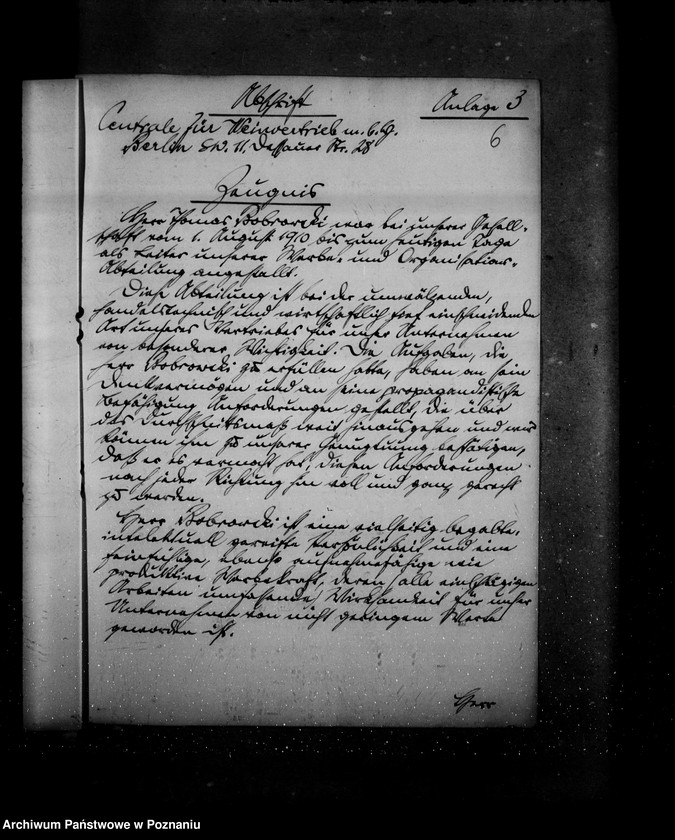 Abschrift
Anlage 3
6
Centrale für Weinvertrieb m.b.H.
Berlin SW. 11. Dessauer Str. 28
Zeugnis
Herr Thomas Bobrowski war bei unserer Gesell-
schaft vom 1. August 1910 bis zum heutigen Tage
als Leiter unserer Werbe- und Organisations-
Abteilung angestellt.
Diese Abteilung ist bei der umwälzenden,
handelstechnisch und wirtschaftlich tief einschneidenden
Art unseres Vertriebes für unser Unternehmen
von besonderer Wichtigkeit. Die Aufgaben, die
Herr Bobrowski zu erfüllen hatte, haben an sein
Denkvermögen und an seine propagandistische
Befähigung Anforderungen gestellt, die über
das Durchschnittsmaß weit hinausgehen und wir
können ihm zu unserer Genugtuung bestätigen,
daß er es vermocht hat, diesen Anforderungen
nach jeder Richtung hin voll und ganz gerecht
zu werden.
Herr Bobrowski ist eine vielseitig begabte,
intelektuell gereifte Persönlichkeit und eine
feinfühlige, ebenso aufnahmefähige wie
produktive Werbekraft, deren alle einschlägigen
Arbeiten umfassende Wirksamkeit für unser
Unternehmen von nicht geringem Werte
geworden ist.
Herr
Archiwum Państwowe w Poznaniu